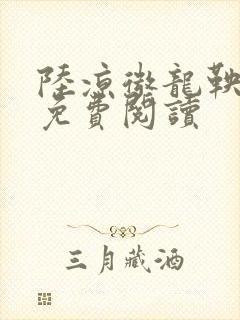 陸凉徽龍鞅
免費閱讀
三月藏酒